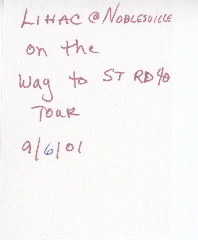 LIHAC @ NOBLESVILLE
on the
Way to ST RD %
TOUR
9/6/01